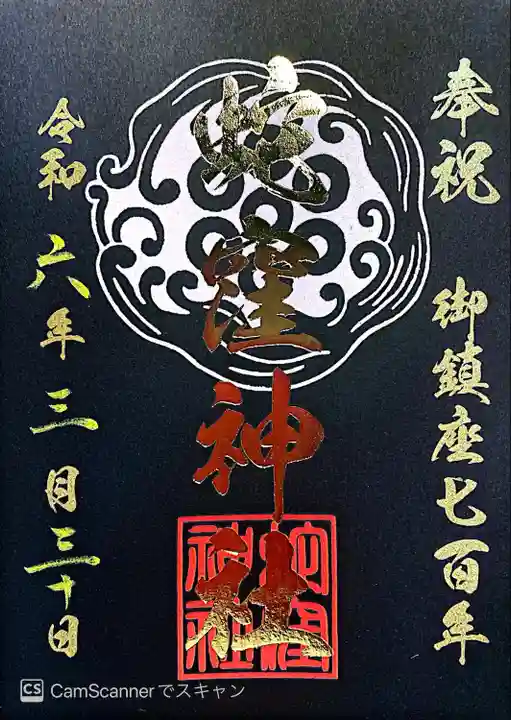 奉祝 御鎮座七百年
蛇窪神社
令和六年三月三十日
蛇窪
神社
CS CamScannerでスキャン